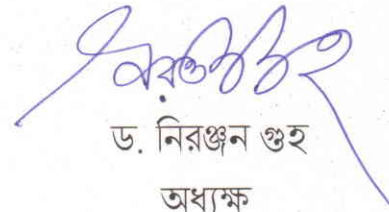 ড. নিরঞ্জন গুহ
অধ্যক্ষ